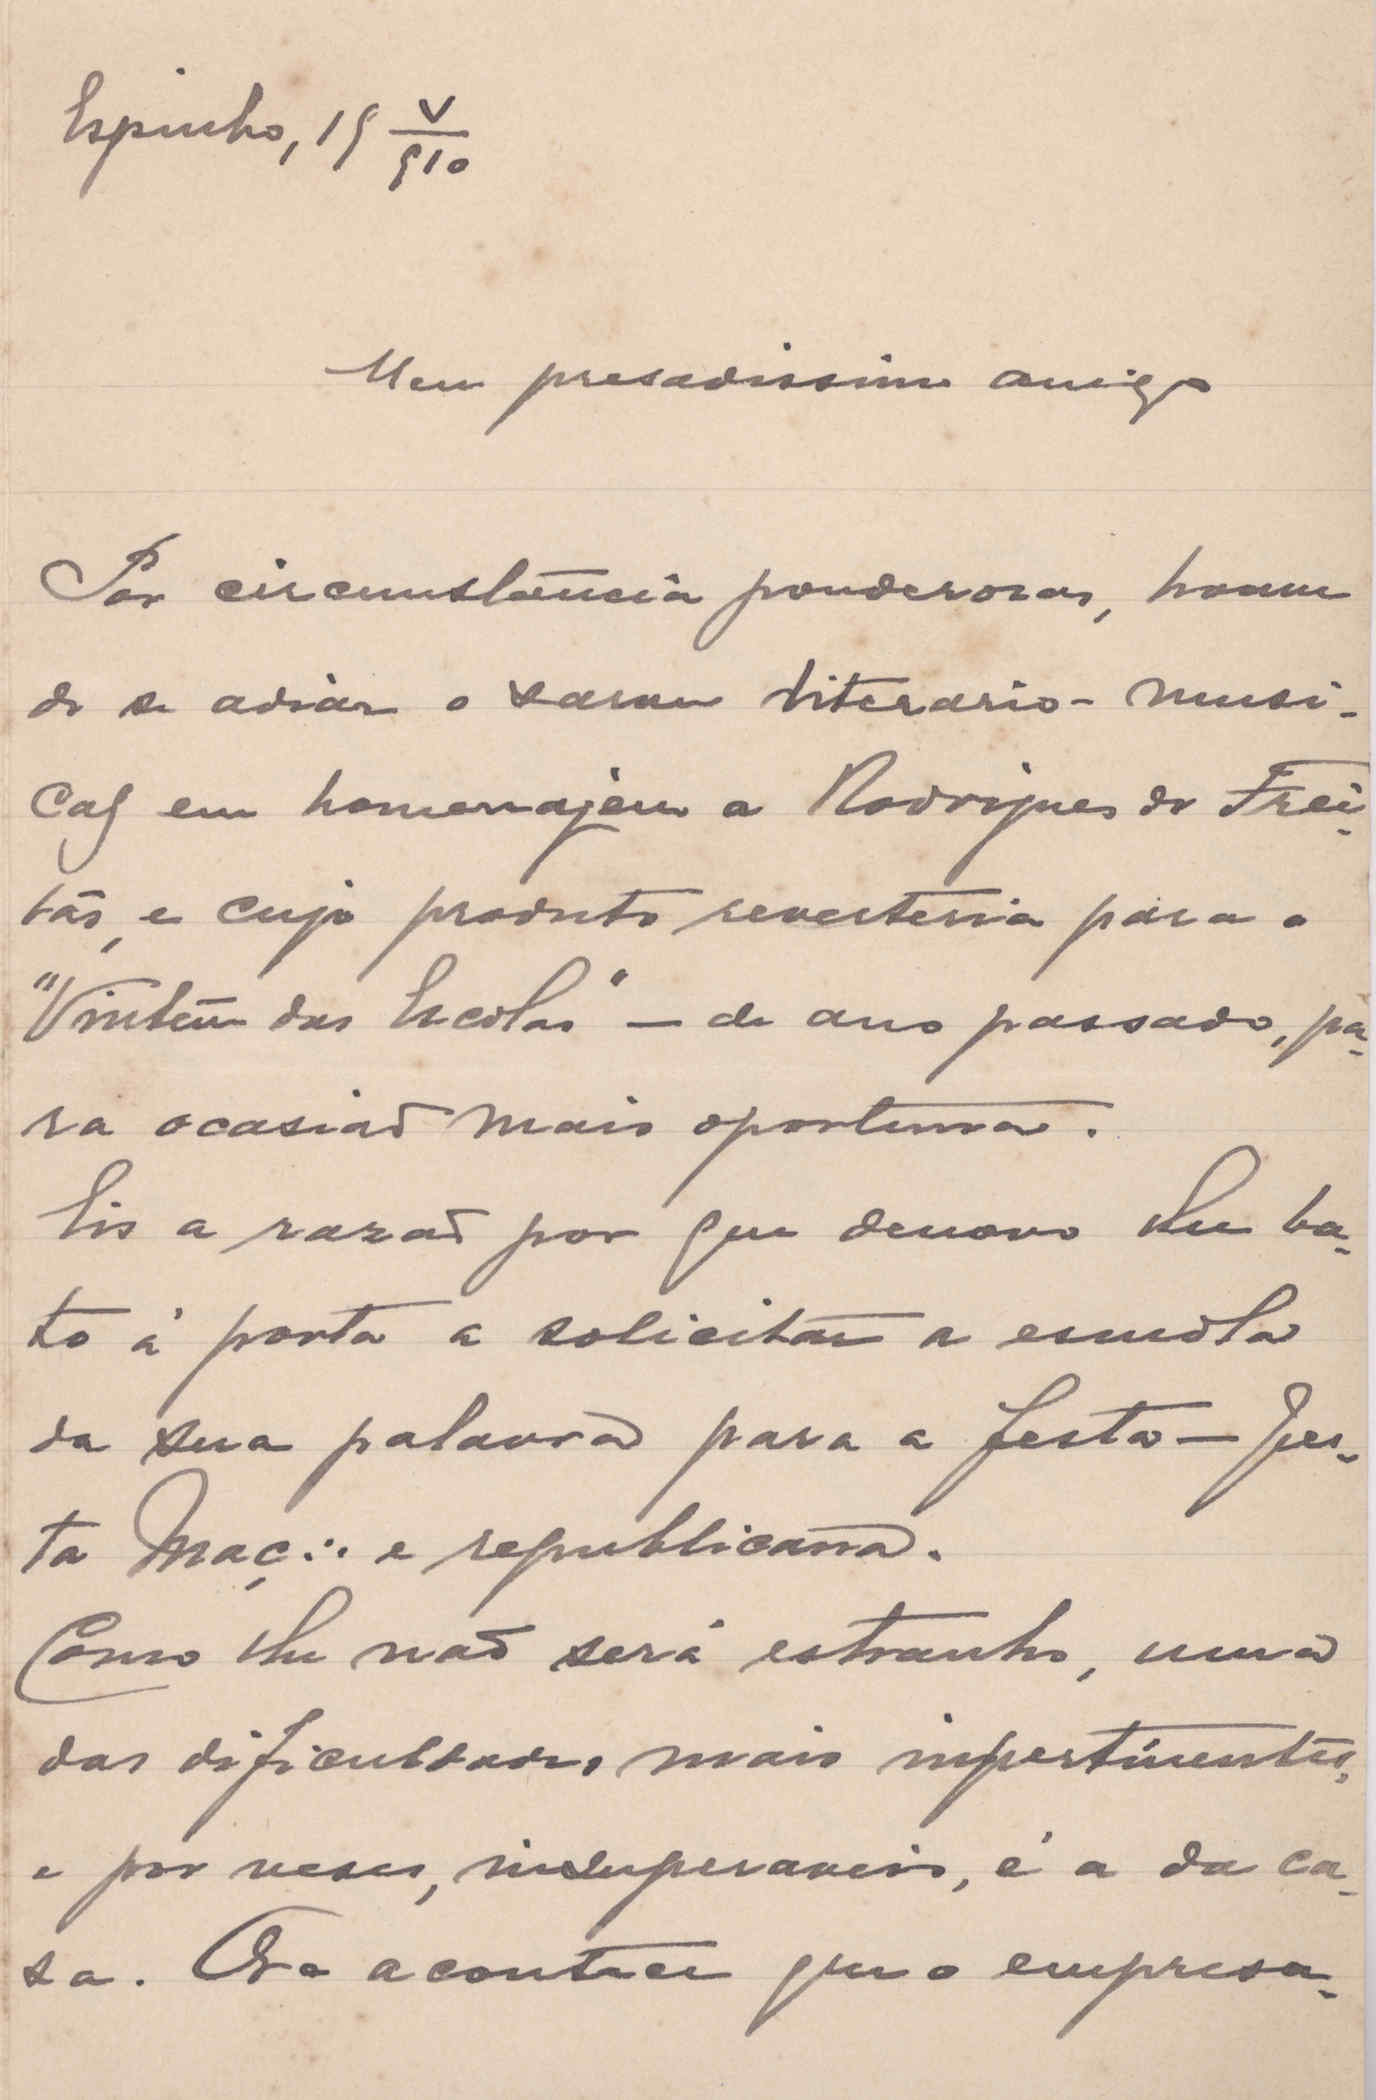 Espinho, 19 V/910
Meu presadissimo amigo
Por circumstancia ponderosas, houve
de se adiar o sarau literario-musi-
cal em homenajem a Rodrigues de Frei-
tas, e cujo produto reverteria para o
"Vintem das Escolas" — de ano passado, pa-
ra ocasiaõ mais oportuna.
Eis a razaõ por que denovo lhe ba-
to á porta a solicitar a esmola
da sua palavra para a festa — fes-
ta Maç∴ e republicana.
Como lhe naõ será estranho, uma
das dificuldades mais impertinentes,
e por vezes, insuperaveis, é a da ca-
sa. Ora acontece que o empresa-